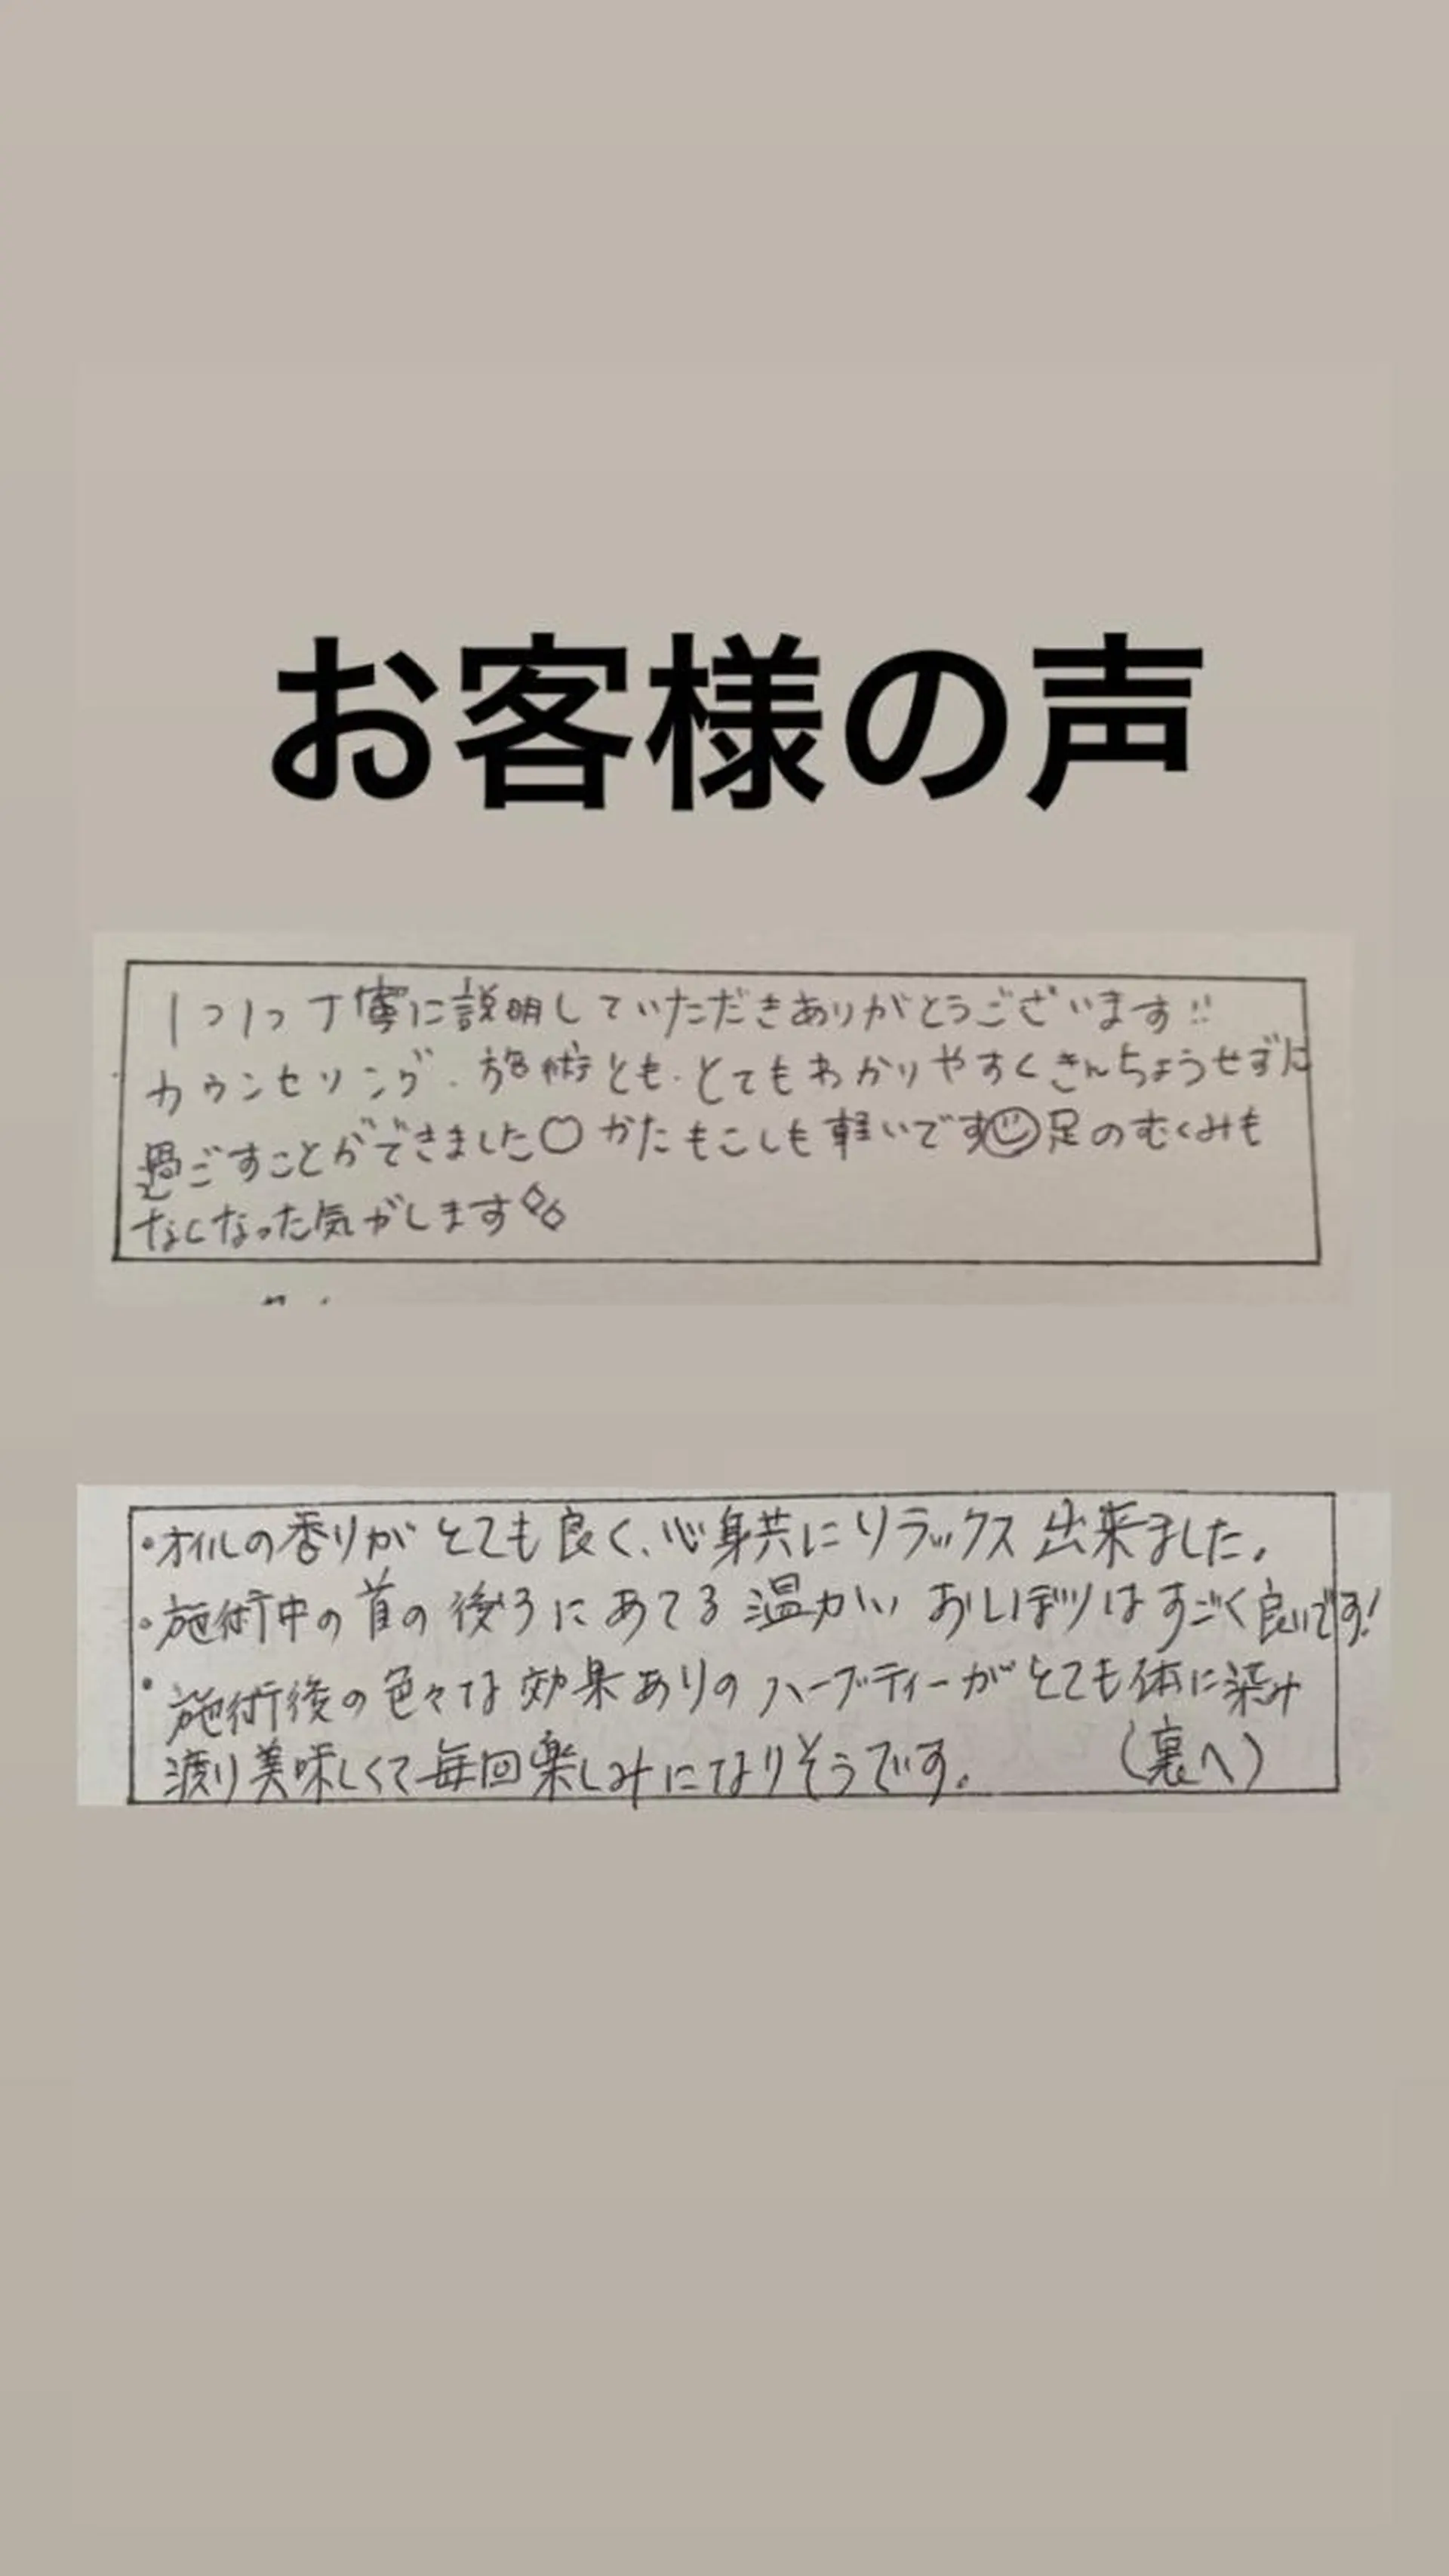 お客様の声
1つ1つ丁寧に説明していただきありがとうございます!!
カウンセリング、施術とも、とてもわかりやすくきんちょうせずに
過ごすことができました♡かたもこしも軽いです☺足のむくみも
なくなった気がします
・オイルの香りがとても良く、心身共にリラックス出来ました。
・施術中の首の後ろにあてる温かいおしぼりはすごく良いです!
・施術後の色々な効果ありのハーブティーがとても体に染み
渡り美味しくて毎回楽しみになりそうです。 (裏へ)